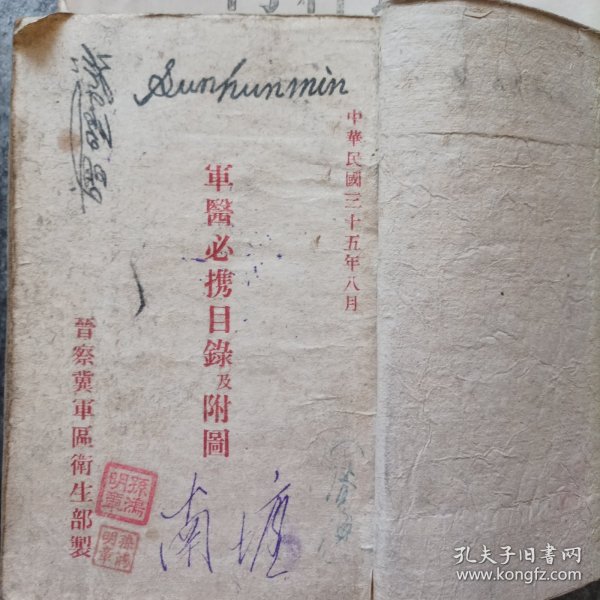 Sunhunmin
中華民國三十五年八月
軍醫必携目錄及附圖
晉察冀軍區衛生部製
孫鴻明章
南塘
孔夫子旧书网
www.kongfz.com